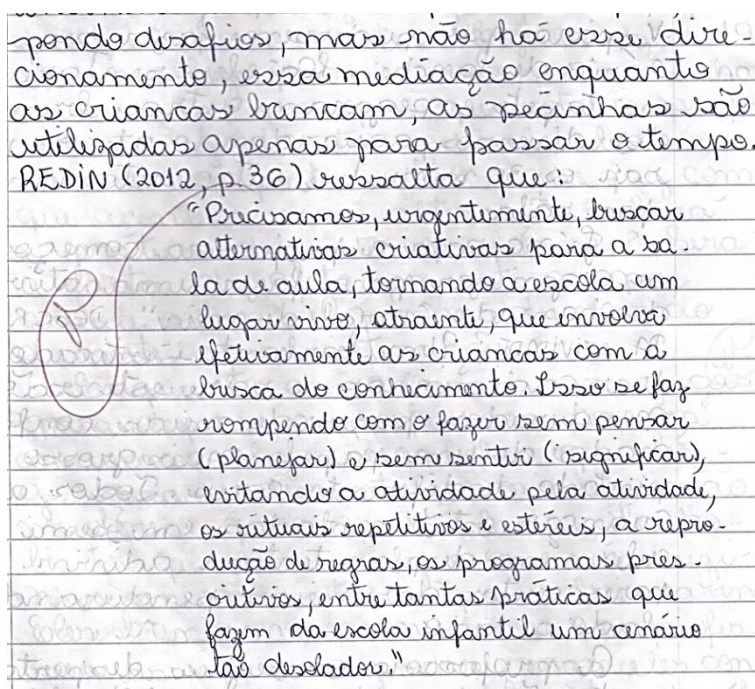 pondo desafios, mas não há esse dire-
cionamento, essa mediação enquanto
as criancas brincam, as pecinhas são
utilizadas apenas para passar o tempo.
REDIN (2012, p. 36) ressalta que:
"Precisamos, urgentemente, buscar
alternativas criativas para a sa-
la de aula, tornando a escola um
lugar vivo, atraente, que envolva
efetivamente as criancas com a
busca do conhecimento. Isso se faz
rompendo com o fazer sem pensar
(planejar) e sem sentir (significar),
evitando a atividade pela atividade,
os rituais repetitivos e estéreis, a repro-
dução de regras, os programas pres-
critivos, entre tantas práticas que
fazem da escola infantil um cenário
tão desolador."